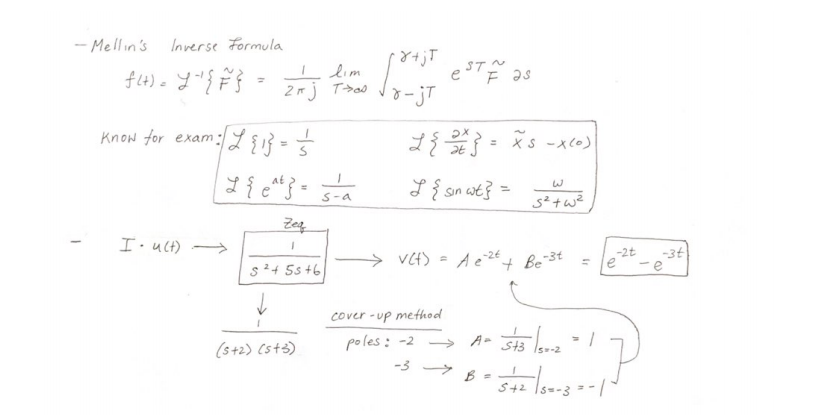 - Mellin's Inverse Formula
f(t) = ℒ⁻¹{F̃} = 1/(2πj) lim T→∞ ∫_{γ-jT}^{γ+jT} e^{sT} F̃ ∂s
Know for exam: ℒ{1} = 1/s ℒ{∂x/∂t} = x̃s - x(0)
ℒ{e^{at}} = 1/(s-a) ℒ{sin wt} = ω/(s²+ω²)
Zeq
- I · u(t) → 1/(s²+5s+6) → v(t) = Ae^{-2t} + Be^{-3t} = e^{-2t} - e^{-3t}
↓
1/((s+2)(s+3))
cover-up method
poles: -2 → A = 1/(s+3) |_{s=-2} = 1
-3 → B = 1/(s+2) |_{s=-3} = -1